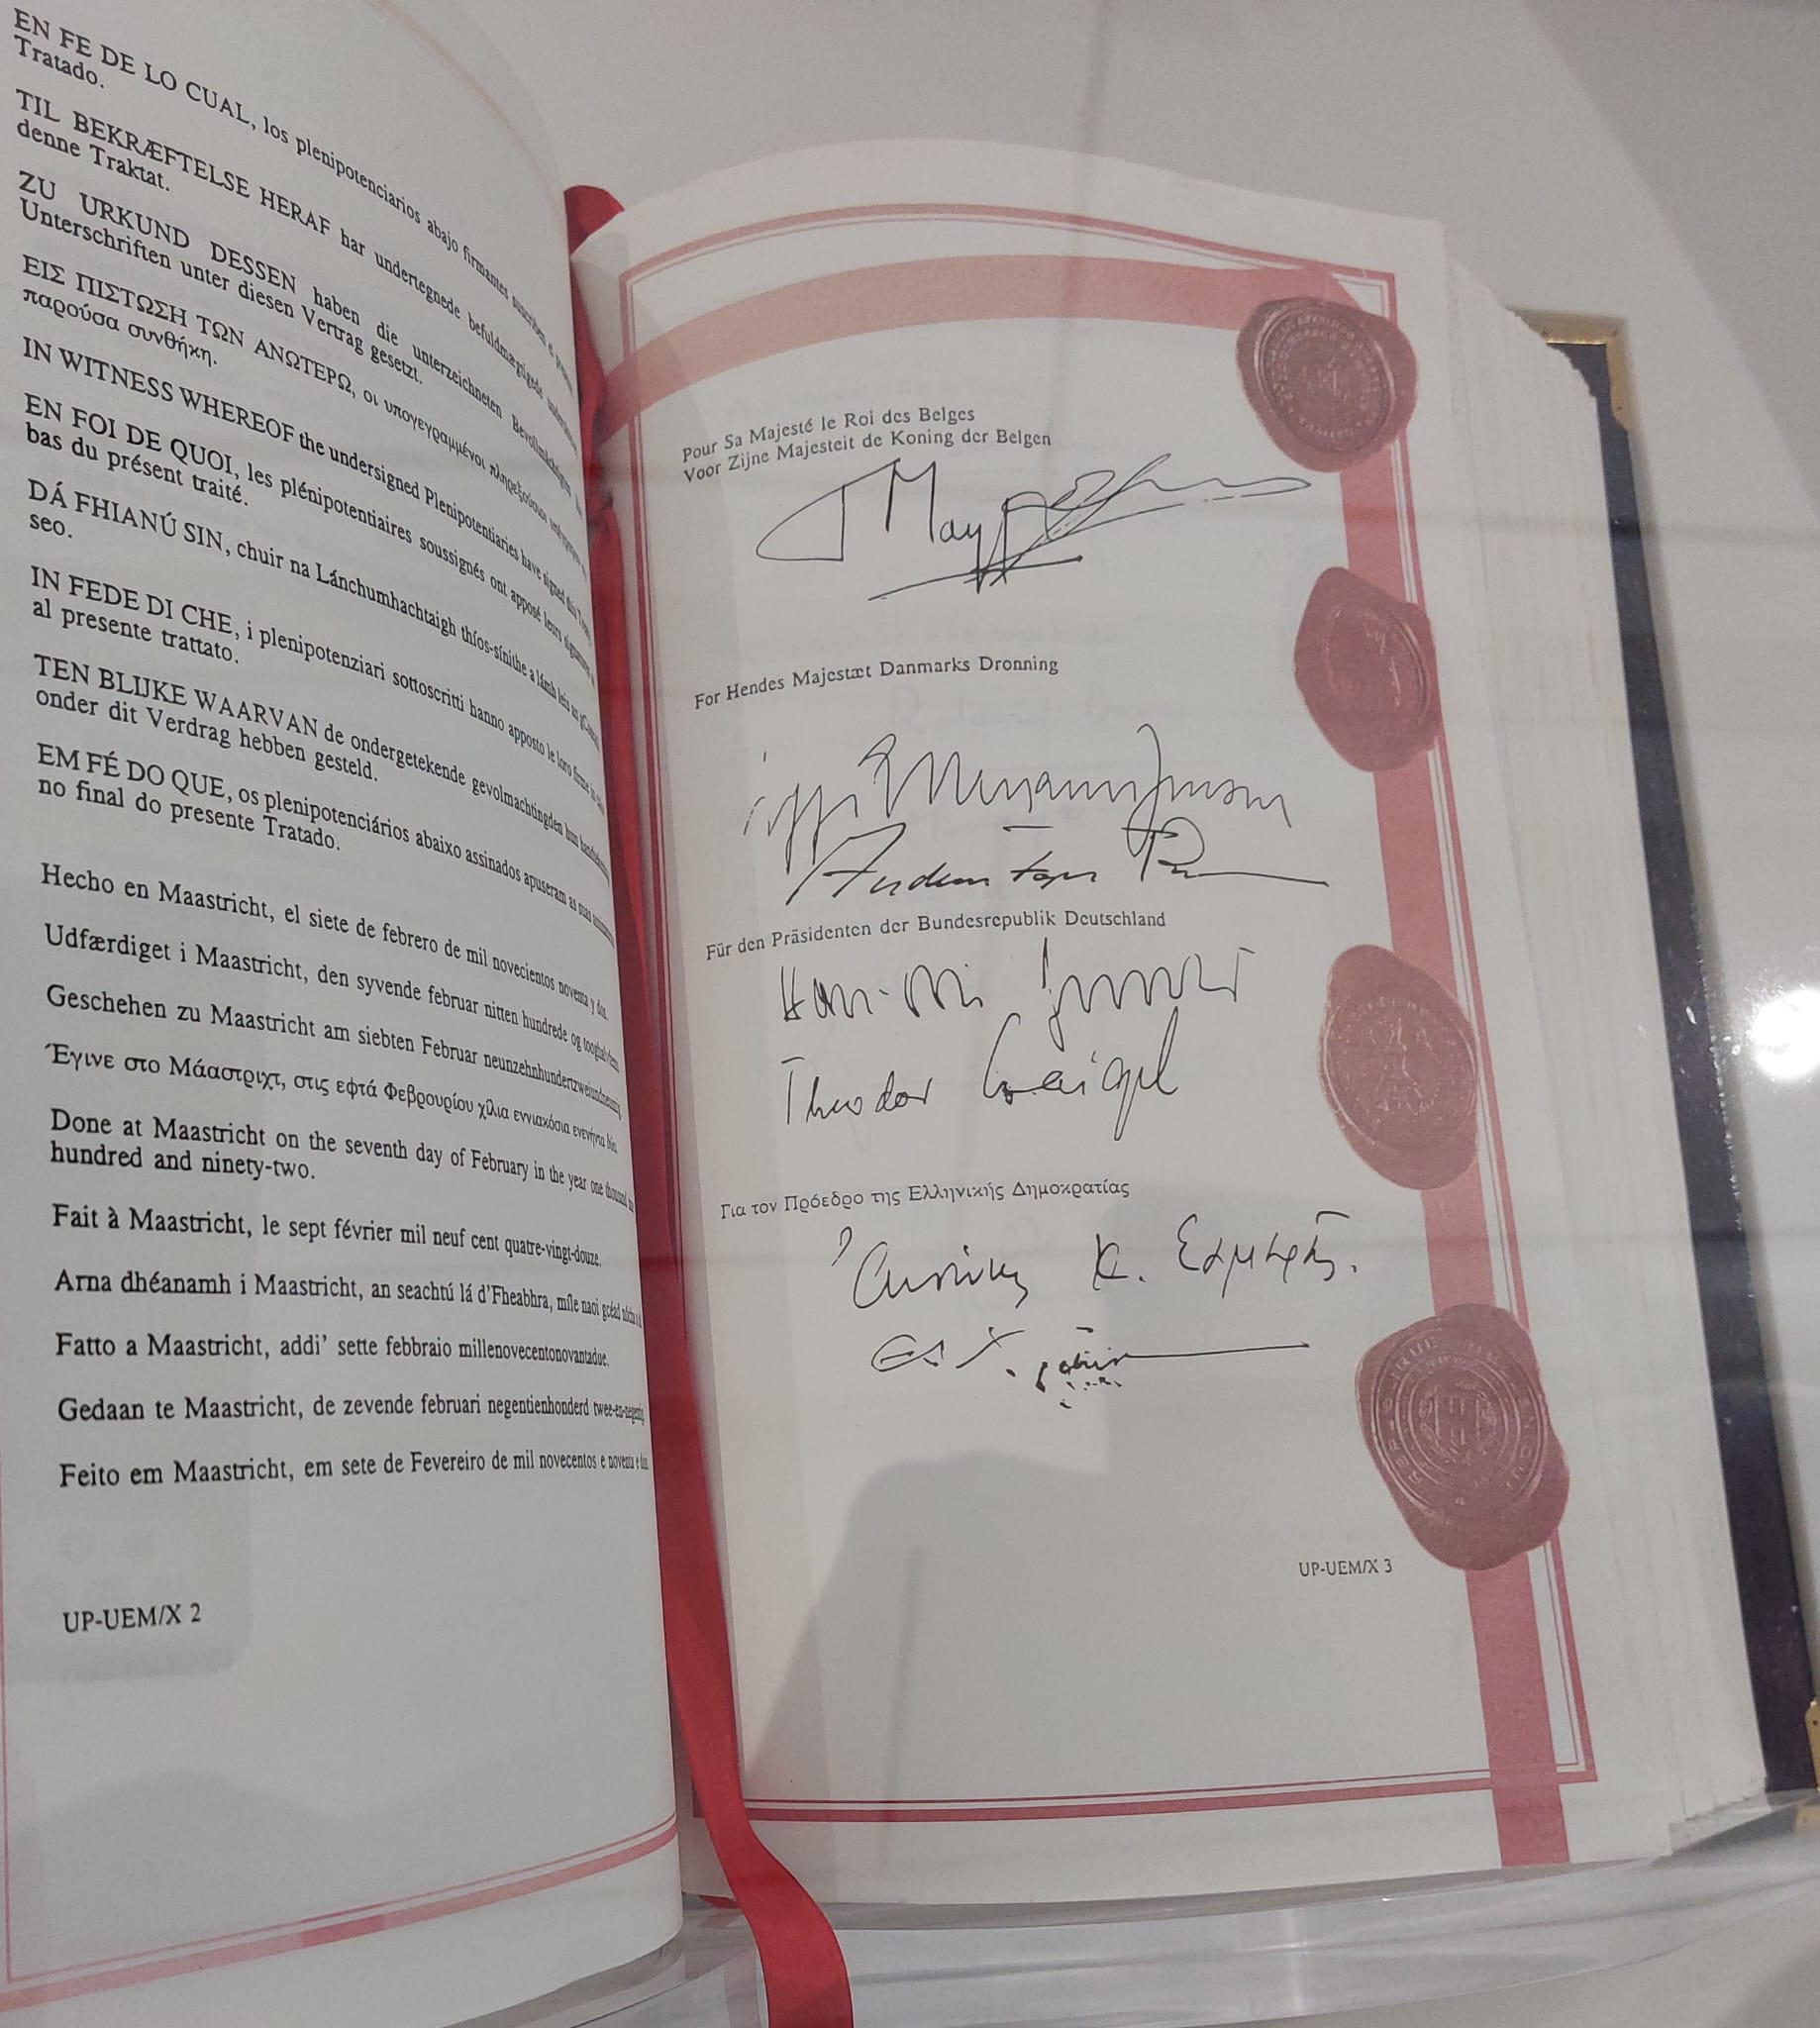 EN FE DE LO CUAL, los plenipotenciarios abajo firmantes suscriben el presente
Tratado.
TIL BEKRÆFTELSE HERAF har undertegnede befuldmægtigede
denne Traktat.
ZU URKUND DESSEN haben die unterzeichneten Bevollmächtigten
Unterschriften unter diesen Vertrag gesetzt.
ΕΙΣ ΠΙΣΤΩΣΗ ΤΩΝ ΑΝΩΤΕΡΩ, οι υπογεγραμμένοι πληρεξούσιοι
παρούσα συνθήκη.
IN WITNESS WHEREOF the undersigned Plenipotentiaries have signed this
EN FOI DE QUOI, les plénipotentiaires soussignés ont apposé leurs signatures
bas du présent traité.
DÁ FHIANÚ SIN, chuir na Lánchumhachtaigh thíos-sínithe a lámh leis an
seo.
IN FEDE DI CHE, i plenipotenziari sottoscritti hanno apposto le loro firme in
al presente trattato.
TEN BLIJKE WAARVAN de ondergetekende gevolmachtigden hun
onder dit Verdrag hebben gesteld.
EM FÉ DO QUE, os plenipotenciários abaixo assinados apuseram as suas
no final do presente Tratado.
Hecho en Maastricht, el siete de febrero de mil novecientos noventa y dos.
Udfærdiget i Maastricht, den syvende februar nitten hundrede og
Geschehen zu Maastricht am siebten Februar
Έγινε στο Μάαστριχτ, στις εφτά Φεβρουρίου χίλια εννιακόσια ενενήντα δύο.
Done at Maastricht on the seventh day of February in the year one thousand
hundred and ninety-two.
Fait à Maastricht, le sept février mil neuf cent quatre-vingt-douze.
Arna dhéanamh i Maastricht, an seachtú lá d'Fheabhra, míle naoi gcéad
Fatto a Maastricht, addi' sette febbraio millenovecentonovantadue.
Gedaan te Maastricht, de zevende februari negentienhonderd twee-en-negentig.
Feito em Maastricht, em sete de Fevereiro de mil novecentos e noventa e dois.
UP-UEM/X 2
Pour Sa Majesté le Roi des Belges
Voor Zijne Majesteit de Koning der Belgen
For Hendes Majestæt Danmarks Dronning
Für den Präsidenten der Bundesrepublik Deutschland
Theodor Waigel
Για τον Πρόεδρο της Ελληνικής Δημοκρατίας
UP-UEM/X 3